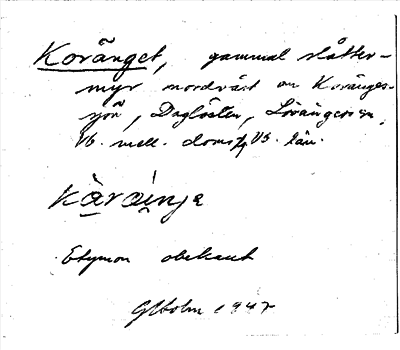 Korånget, gammal slåtter-
myr nordväst om Korånges-
sjön, Daglösten, Lövångers sn,
Vb. mell. doms. Vb. län.
Etymon obekant
GHolm 1947